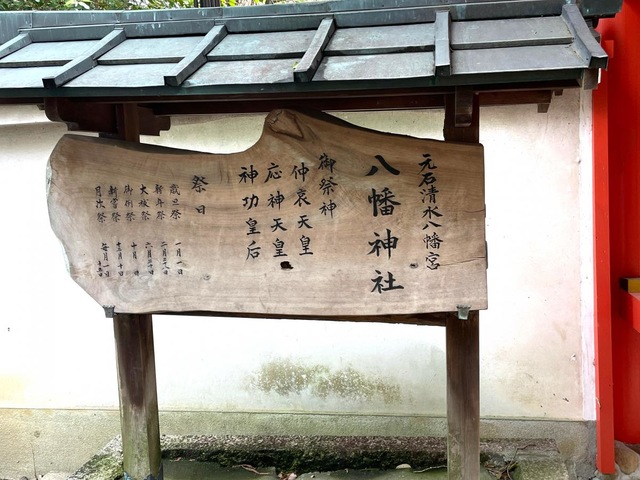 元石清水八幡宮
八幡神社
御祭神
仲哀天皇
応神天皇
神功皇后
祭日
歳旦祭 一月一日
祈年祭
大祓祭
御例祭 十月
新嘗祭
月次祭 毎月一日